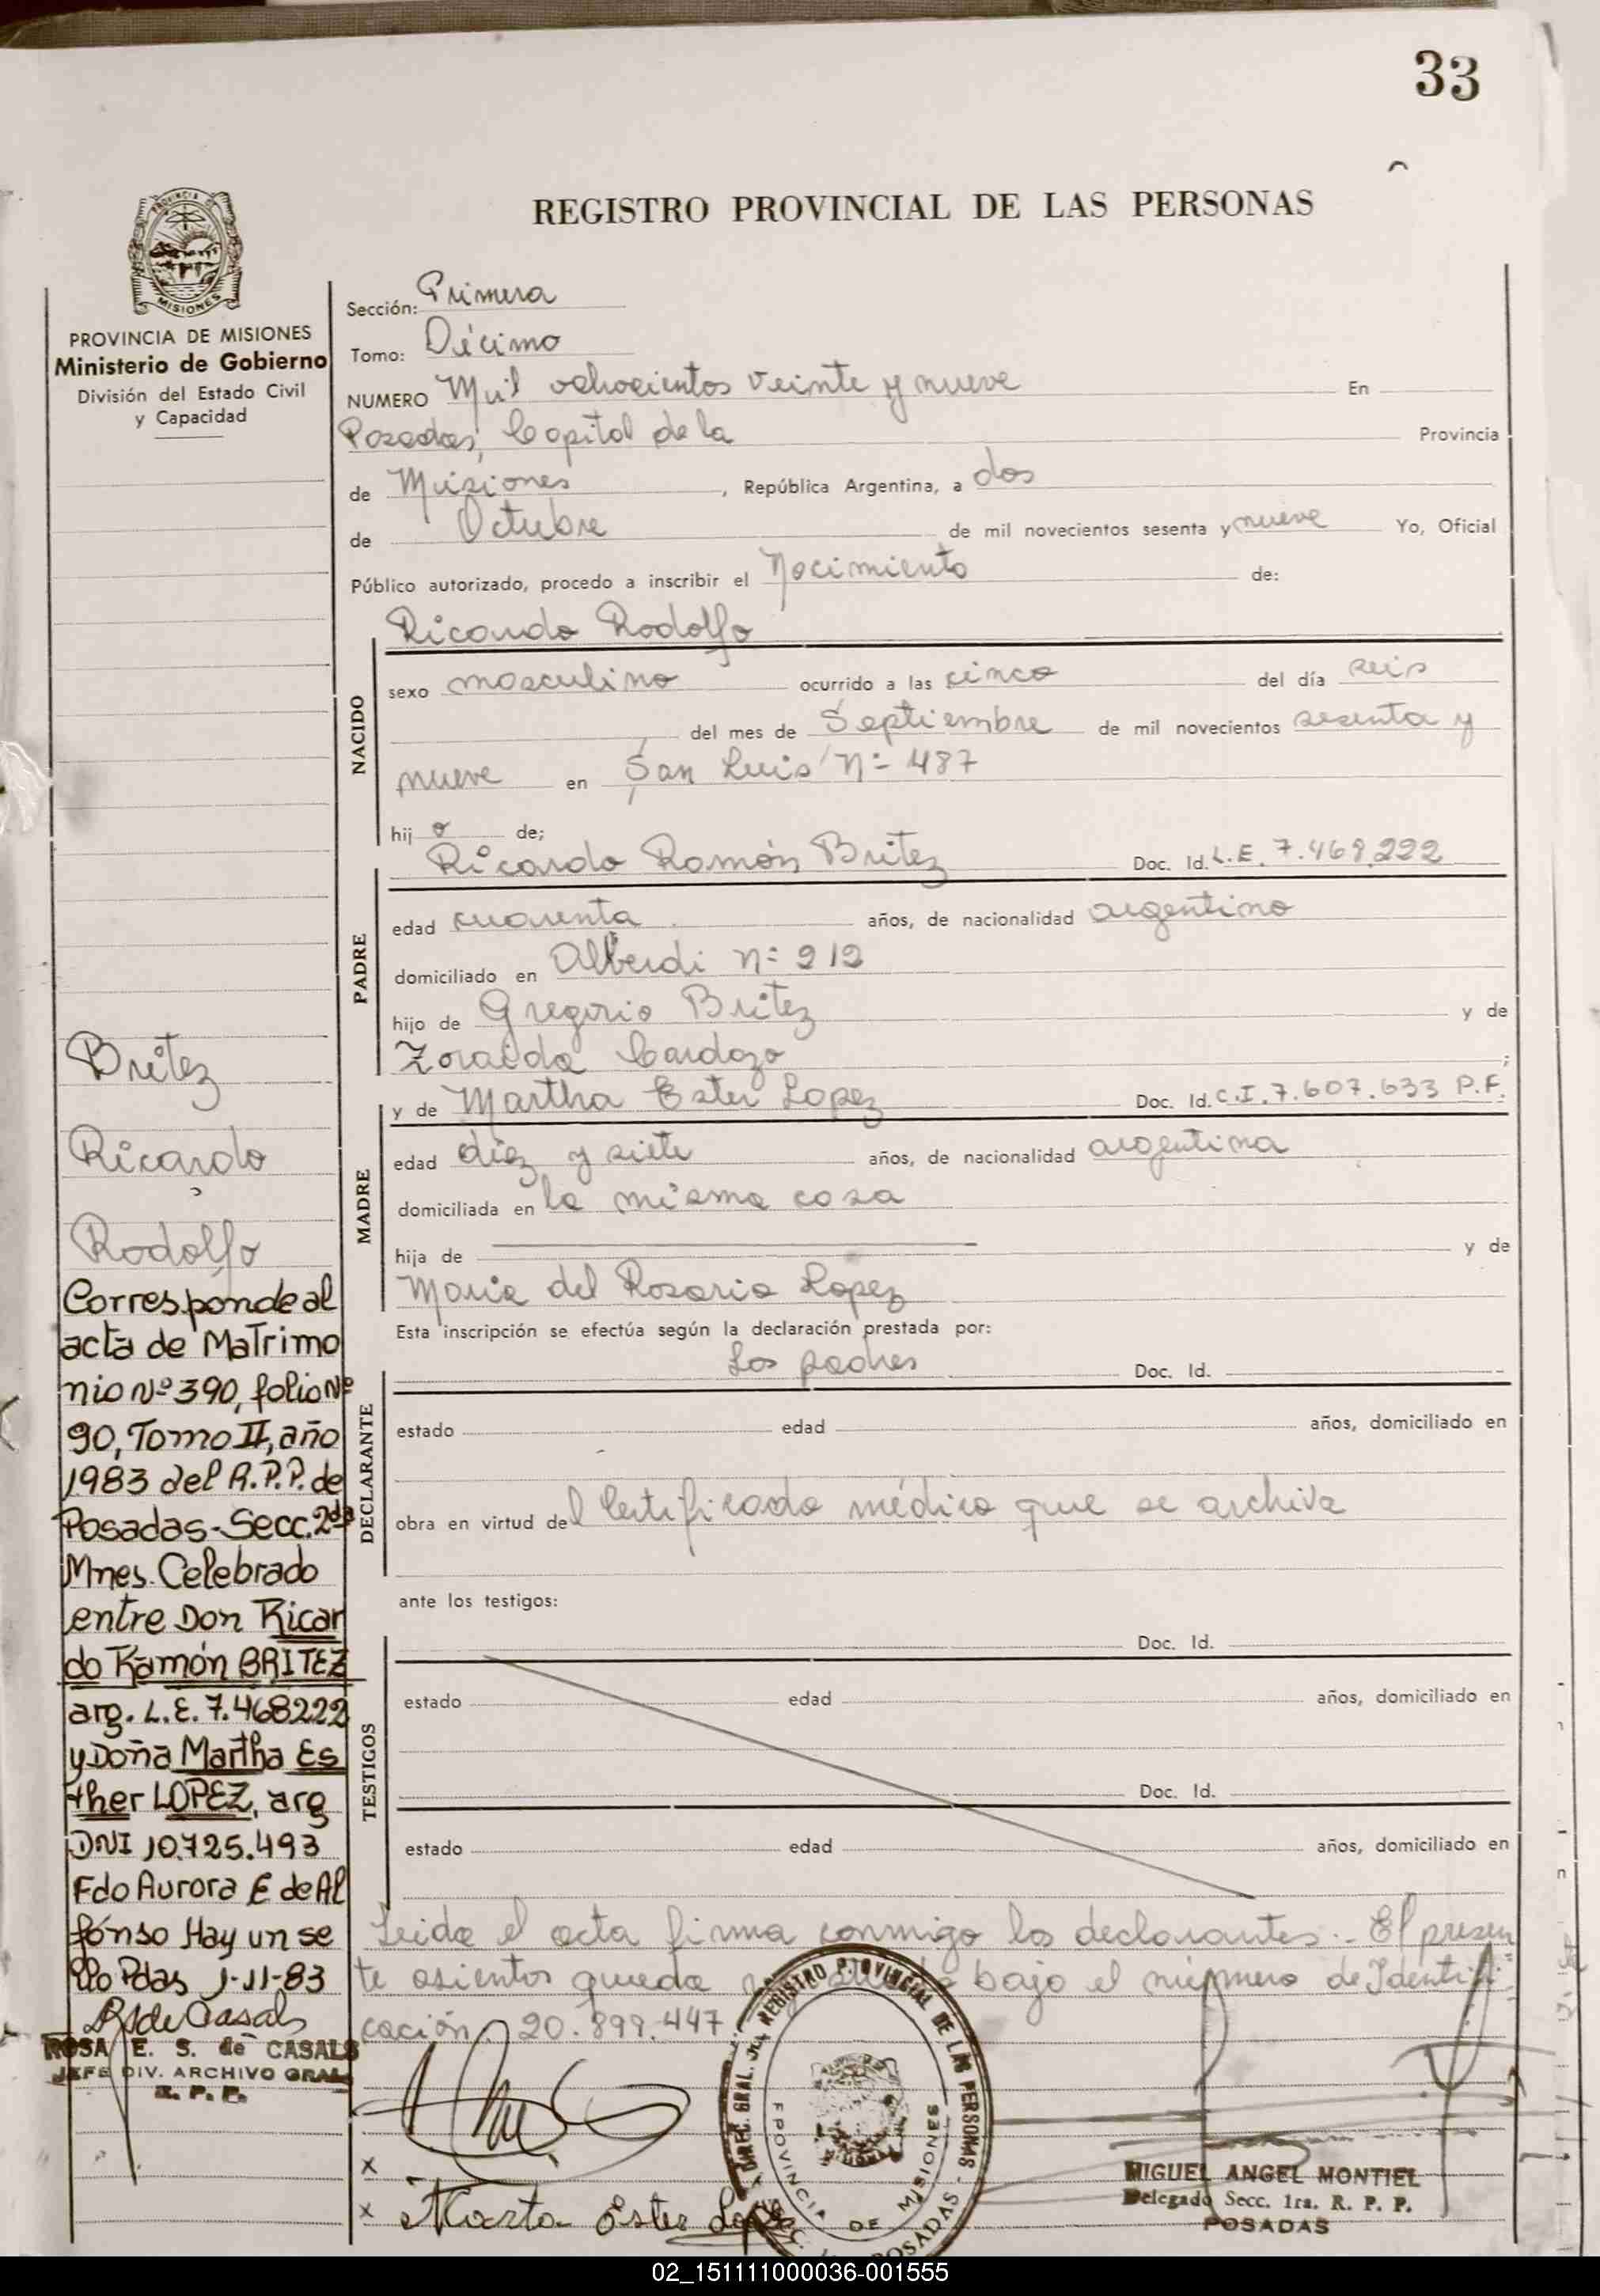 33
REGISTRO PROVINCIAL DE LAS PERSONAS
MISIONES
PROVINCIA DE MISIONES
Ministerio de Gobierno
División del Estado Civil
y Capacidad
Sección: Primera
Tomo: Décimo
NUMERO Mil ochocientos veinte y nueve En
Posadas, Capital de la Provincia
de Misiones, República Argentina, a dos
de Octubre de mil novecientos sesenta y nueve Yo, Oficial
Público autorizado, procedo a inscribir el Nacimiento de:
Ricardo Rodolfo
NACIDO
sexo masculino ocurrido a las cinco del día seis
del mes de Septiembre de mil novecientos sesenta y
nueve en San Luis Nº 487
hij o de;
Ricardo Ramón Britez Doc. Id. L.E. 7.468.222
PADRE
edad cuarenta años, de nacionalidad argentino
domiciliado en Alberdi Nº 212
hijo de Gregorio Britez y de
Zoraida Cardozo ;
y de Martha Ester Lopez Doc. Id. C.I. 7.607.633 P.F.
MADRE
edad diez y siete años, de nacionalidad argentina
domiciliada en la misma casa
hija de y de
Maria del Rosario Lopez
Esta inscripción se efectúa según la declaración prestada por:
Los padres Doc. Id.
DECLARANTE
estado edad años, domiciliado en
obra en virtud del Certificado médico que se archiva
ante los testigos:
Doc. Id.
TESTIGOS
estado edad años, domiciliado en
Doc. Id.
estado edad años, domiciliado en
Leida el acta firma conmigo los declarantes.- El presen
te asientos queda bajo el número de Identifi
cación 20.899.447
Britez
Ricardo
Rodolfo
Corresponde al
acta de Matrimo
nio Nº 390, folio Nº
90, Tomo II, año
1983 del R.P.P. de
Posadas-Secc. 2da
Mnes. Celebrado
entre Don Ricar
do Ramón BRITEZ
arg. L.E. 7.468222
y Doña Martha Es
ther LOPEZ, arg
DNI 10.725.493
Fdo Aurora E de Al
fonso Hay un se
llo Pdas 1-11-83
RSdeCasals
ROSA E. S. de CASALS
JEFE DIV. ARCHIVO GRAL
R. P. P.
x
x Marta Ester
DIREC. GRAL. DEL REGISTRO PROVINCIAL DE LAS PERSONAS - POSADAS
PROVINCIA DE MISIONES
MIGUEL ANGEL MONTIEL
Delegado Secc. 1ra. R. P. P.
POSADAS
02_151111000036-001555